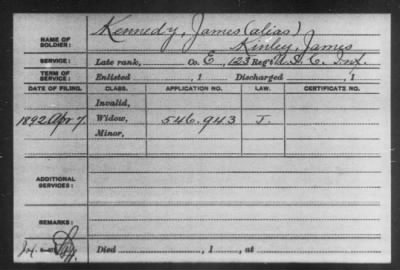 NAME OF SOLDIER: Kennedy, James (alias)
Kinley, James
SERVICE: Late rank, Co. E, 123 Reg't U.S.C. Inf.
TERM OF SERVICE: Enlisted , 1 Discharged , 1
DATE OF FILING. CLASS. APPLICATION NO. LAW. CERTIFICATE NO.
Invalid,
1892 Apr 7 Widow, 546.943 J.
Minor,
ADDITIONAL SERVICES:
REMARKS:
Died , 1 , at